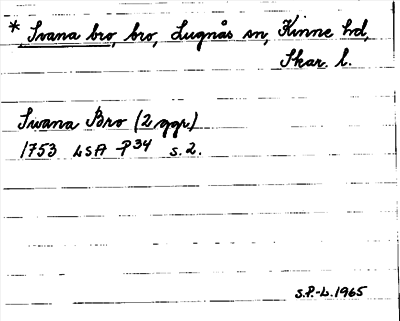 * Svana bro, bro, Lugnås sn, Kinne hd,
Skar. l.
Swana Bro (2 ggr.)
1753 LSA P34 s. 2.
S.P.-L. 1965